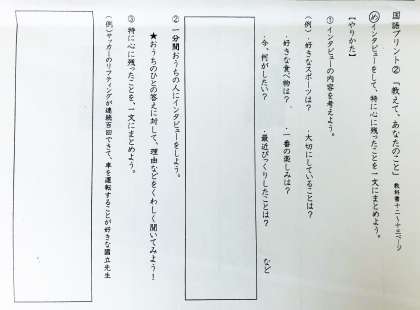 国語プリント② 「教えて、あなたのこと」 教科書十二～十三ページ
めインタビューをして、特に心に残ったことを一文にまとめよう。
【やりかた】
①インタビューの内容を考えよう。
(例)・好きなスポーツは? 大切にしていることは?
・好きな食べ物は? ・一番の楽しみは?
・今、何がしたい? ・最近びっくりしたことは? など
② 一分間おうちの人にインタビューをしよう。
★おうちのひとの答えに対して、理由などをくわしく聞いてみよう!
③ 特に心に残ったことを、一文にまとめよう。
(例)サッカーのリフティングが連続百回できて、車を運転することが好きな國立先生